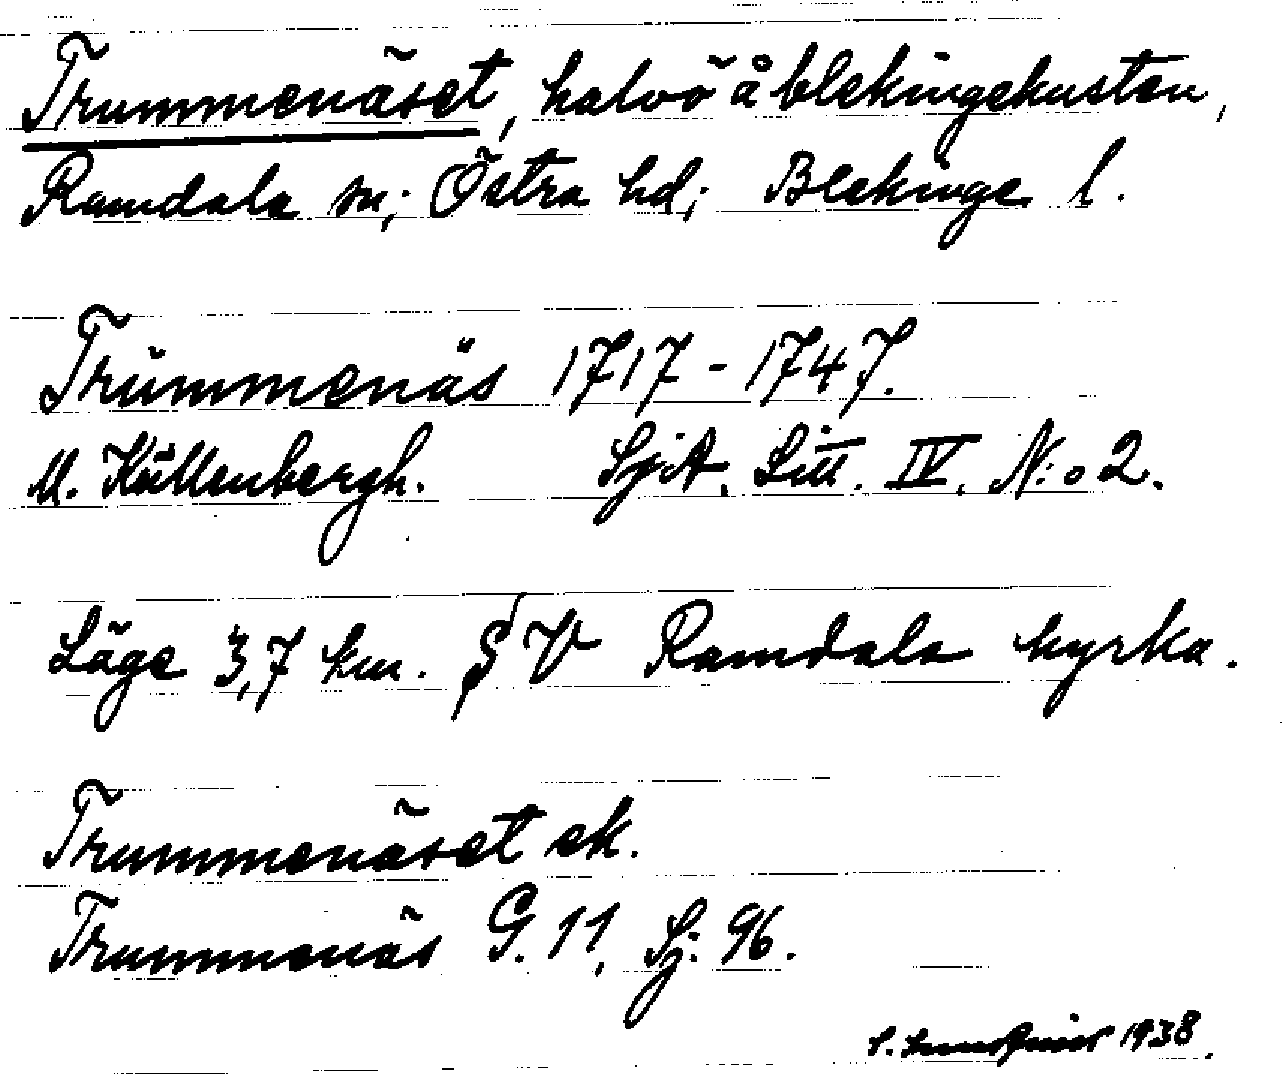 Trummenäset, halvö å blekingekusten,
Ramdala sn; Östra hd; Blekinge l.
Trŭmmenäs 1717-1747.
M. Källenbergh. SjA. Litt. IV. N:o 2.
Läge 3,7 km. SV Ramdala kyrka.
Trummenäset ek.
Trummenäs G. 11, Sj: 96.
1938.